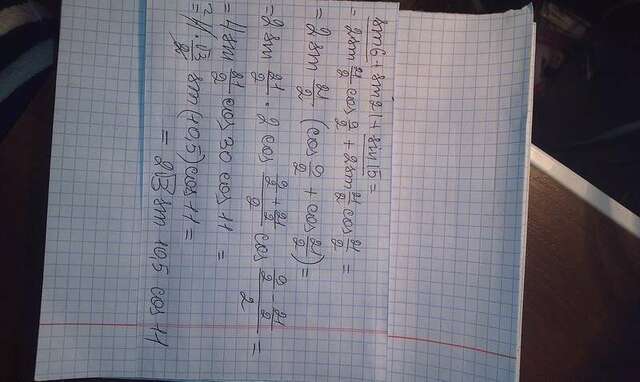 sin6 + sin21 + sin15 =
= 2sin 21/2 cos 9/2 + 2sin 21/2 cos 21/2 =
= 2 sin 21/2 · (cos 9/2 + cos 21/2) =
= 2 sin 21/2 · 2 cos (9/2 + 21/2)/2 cos (9/2 - 21/2)/2 =
= 4 sin 21/2 cos 30 cos -11 =
= 4 · √3/2 sin(10,5) cos -11 =
= 2√3 sin 10,5 cos -11